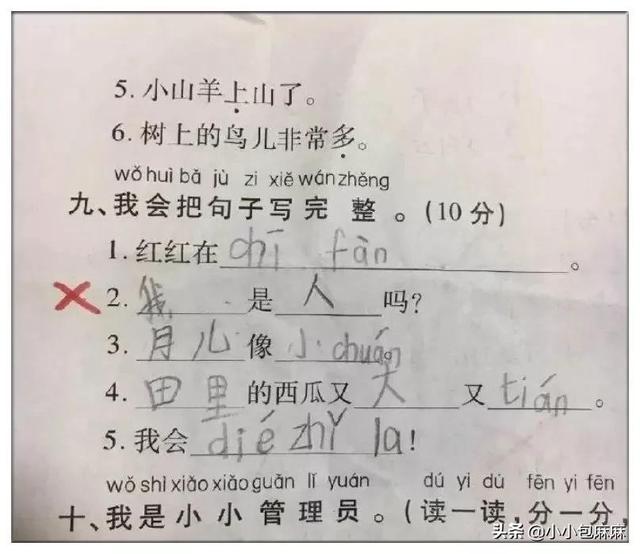 5. 小山羊上山了。
6. 树上的鸟儿非常多。
wǒ huì bǎ jù zi xiě wán zhěng
九、我会把句子写完整。(10分)
1. 红红在chī fàn。
2. 我是人吗?
3. 月儿像小chuán。
4. 田里的西瓜又大又tián。
5. 我会dié zhǐ la!
wǒ shì xiǎo xiǎo guǎn lǐ yuán dú yi dú fēn yi fēn
十、我是小小管理员。(读一读,分一分,
头条 @小小包麻麻